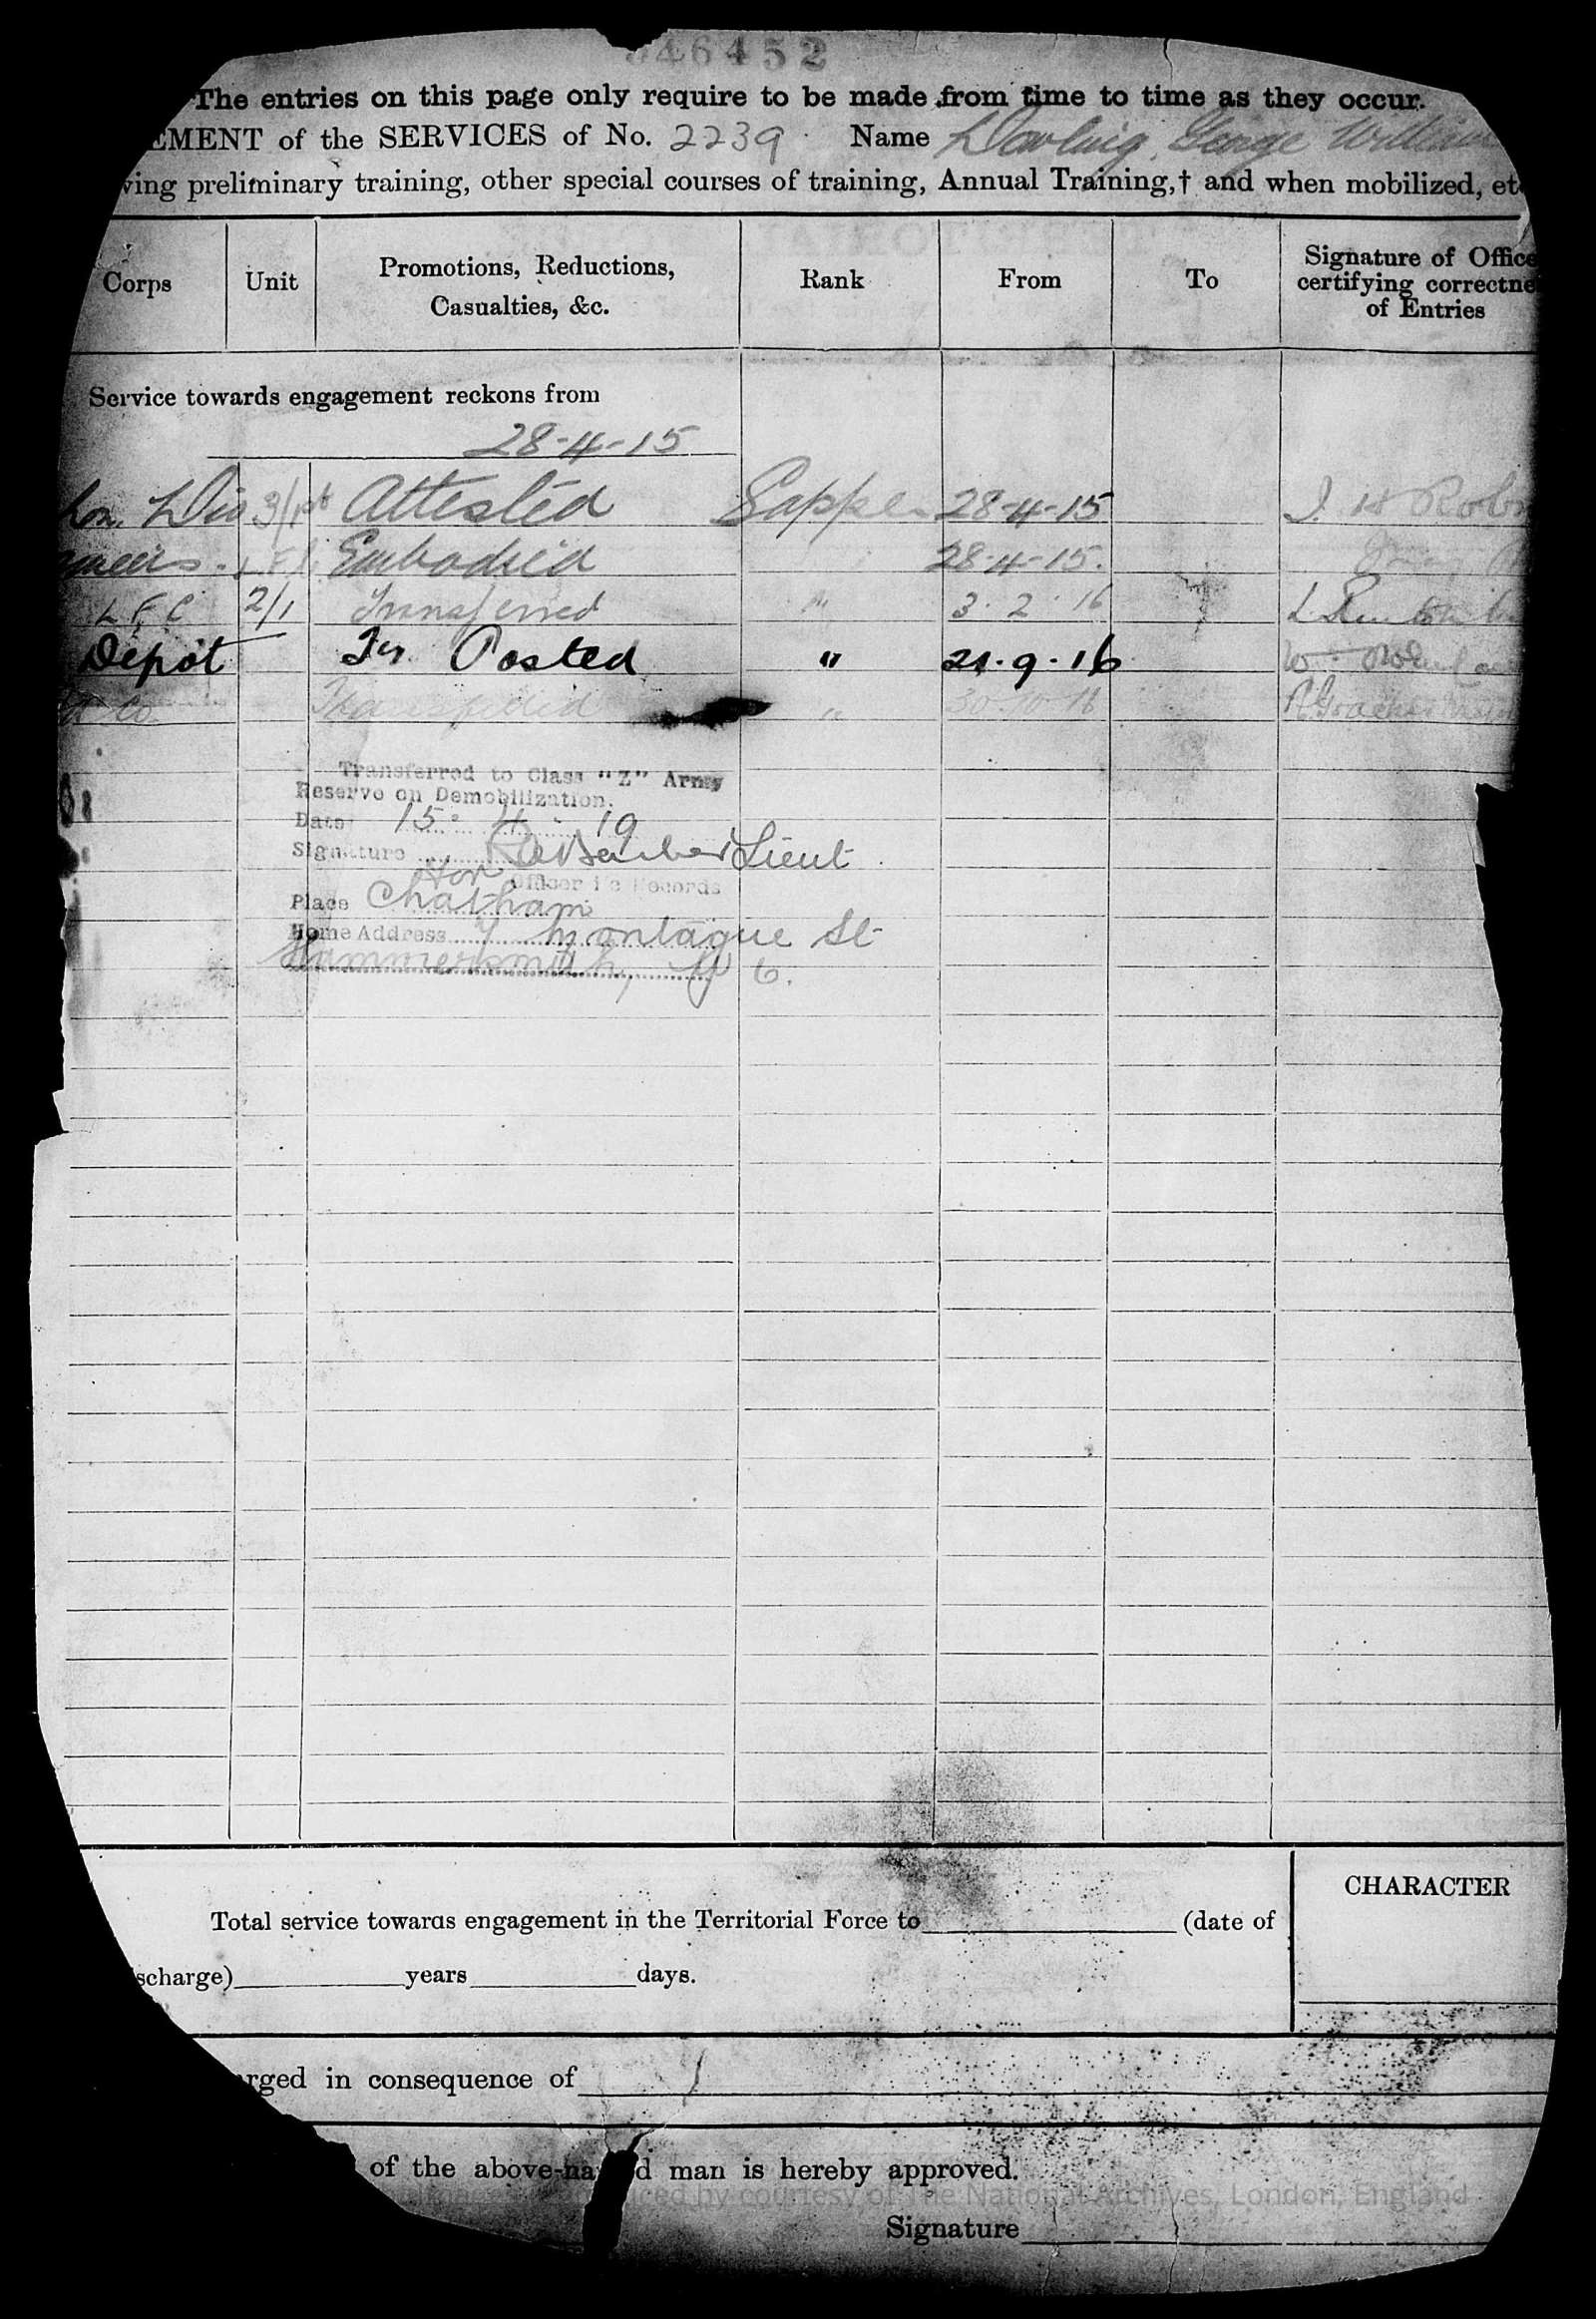 46452
The entries on this page only require to be made from time to time as they occur.
EMENT of the SERVICES of No. 2239 Name Dowling, George William
ving preliminary training, other special courses of training, Annual Training,† and when mobilized, etc
Corps Unit Promotions, Reductions, Casualties, &c. Rank From To Signature of Office certifying correctne of Entries
Service towards engagement reckons from
28-4-15
Lon. Div 3/1st Attested Sapper 28-4-15
Embodied 28-4-15.
2/1 Transferred " 3. 2. 16
Depôt Tr. Posted " 21.9.16
Co. "
Transferred to Class "Z" Army
Reserve on Demobilization.
Date 15. 4. 19
Signature Lieut
for Officer i/c Records
Place Chatham
Home Address 7 Montague St
Hammersmith, W 6.
Total service towards engagement in the Territorial Force to (date of
CHARACTER
scharge) years days.
rged in consequence of
of the above-na d man is hereby approved.
Images reproduced by courtesy of The National Archives, London, England
Signature